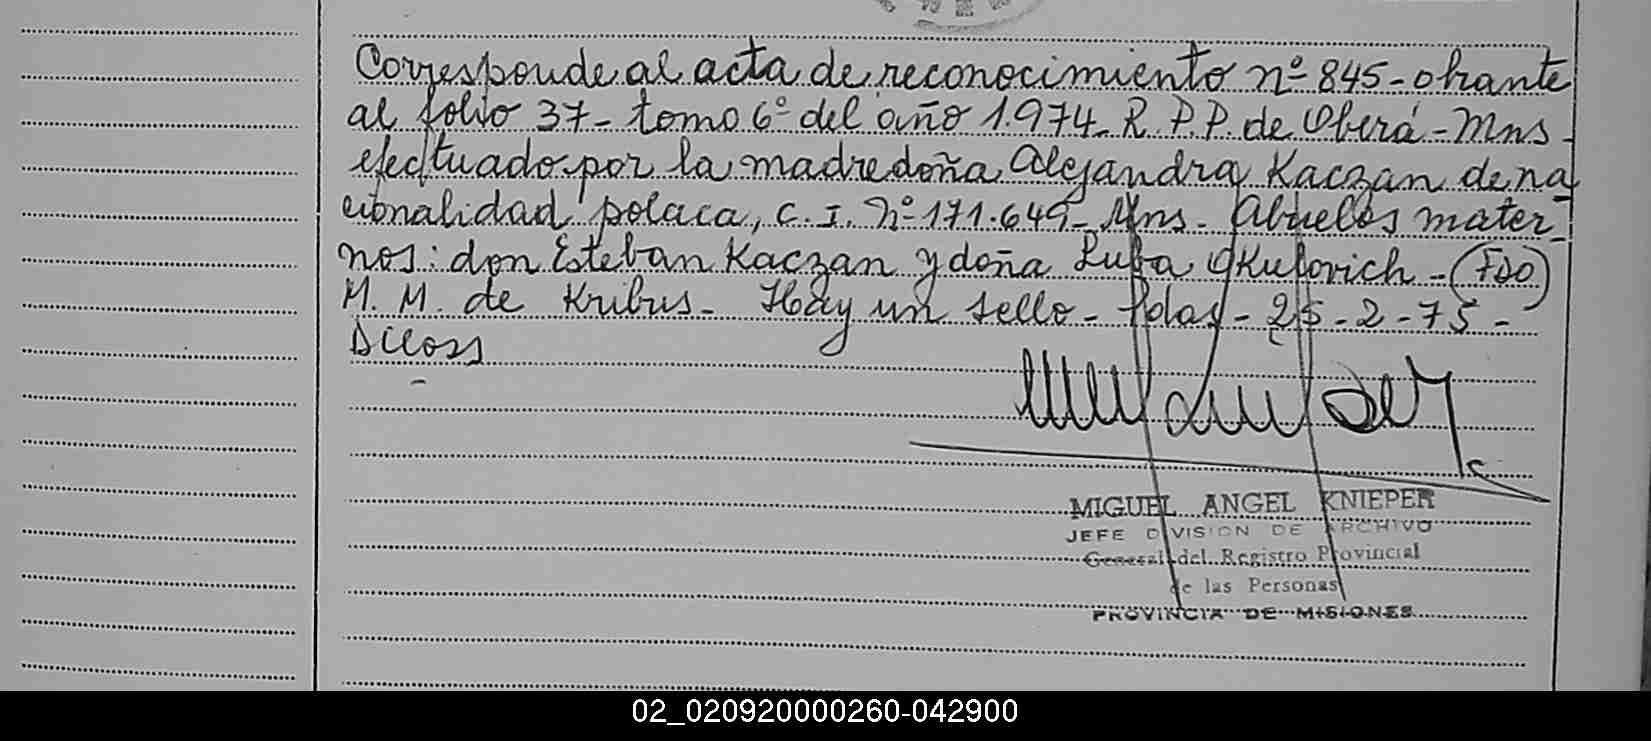 Corresponde al acta de reconocimiento nº 845 - obrante
al folio 37 - tomo 6º del año 1.974 - R. P. P. de Oberá - Mns -
efectuado por la madre doña Alejandra Kaczan de na
cionalidad polaca, C. I. Nº 171.649 - Mns - Abuelos mater-
nos: don Esteban Kaczan y doña Luba - (FDO)
M. M. de Kribus - Hay un sello - Pdas - 25 - 2 - 75 -
MIGUEL ANGEL KNIEPER
JEFE DIVISION DE ARCHIVO
General del Registro Provincial
de las Personas
PROVINCIA DE MISIONES
02_020920000260-042900